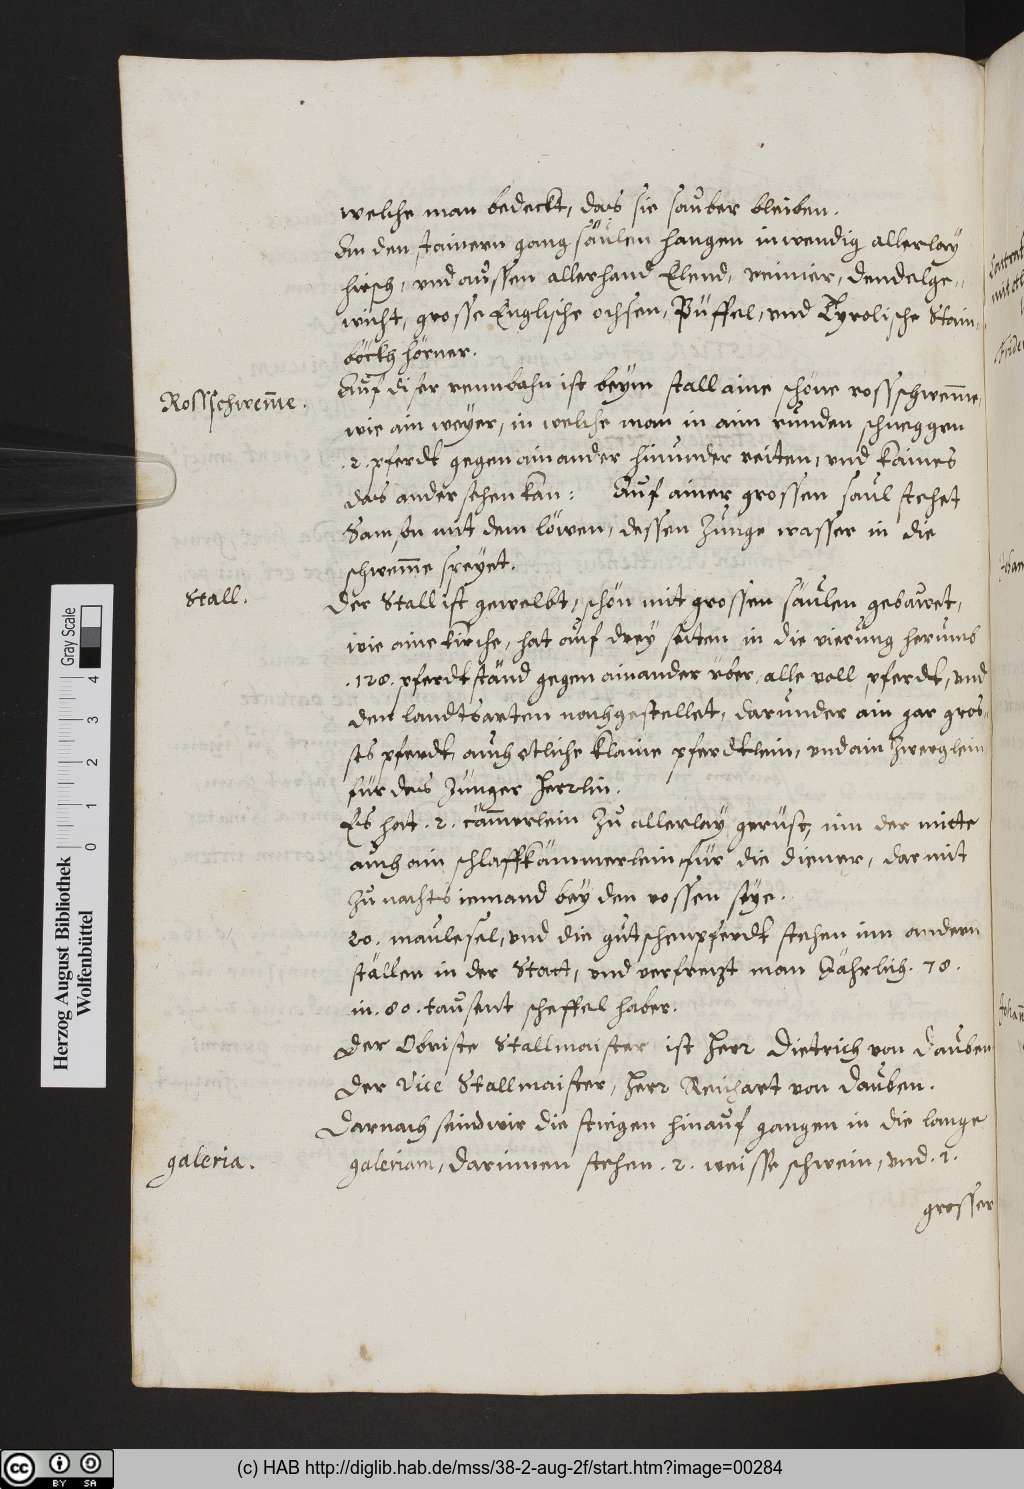 welche man bedeckt, das sie sauber bleiben.
An den stainern gang säulen hangen inwendig allerlay
hirsch, und aussen allerhand Elend, reinier, dendelge-
wicht, grosse Englische ochsen, Püffel, und Tyrolische Stain-
böckh hörner.
Rossschwem̅e.
Auf diser rennbahn ist beym stall aine schöne rossschwem̅e,
wie ain weyer, in welche man in aim runden schneggen
.2. pferdt gegen ainander hinunder reiten, und kaines
das ander sehen kan: Auf ainer grossen saul stehet
Samson mit dem löwen, dessen zunge wasser in die
schwem̅e speyet.
Stall.
Der Stall ist gewelbt, schön mit grossen säulen gebawet,
wie aine kirche, hat auf drey seiten in die vierung herumb
.128. pferdtständ gegen ainander über, alle voll pferdt, und
den landtsarten nachgestellet, darunder ain gar gros-
ses pferdt, auch etliche klaine pferdtlein, und ain zwerglein
für das Junger Herrlin.
Es hat .2. cäm̅erlein zu allerlay gerüst, inn der mitte
auch ain schlaffkämmerlein für die diener, darmit
zu nachts iemand bey den rossen seye.
20. maulesel, und die gutschenpferdt stehen inn andern
ställen in der Statt, und verfretzt man Jährlich .70.
in .80. tausent scheffel haber.
Der Obriste Stallmaister ist Herr Dietrich von Dauben
Der Vice Stallmaister, Herr Reichart von Dauben.
Darnach seind wir die stiegen hinauf gangen in die lange
galeria.
galeriam, darinnen stehen .2. weisse schwein, und .1.
grosser
Herzog August Bibliothek
Wolfenbüttel
0 1 2 3 4
Gray Scale
(c) HAB http://diglib.hab.de/mss/38-2-aug-2f/start.htm?image=00284
cc BY SA